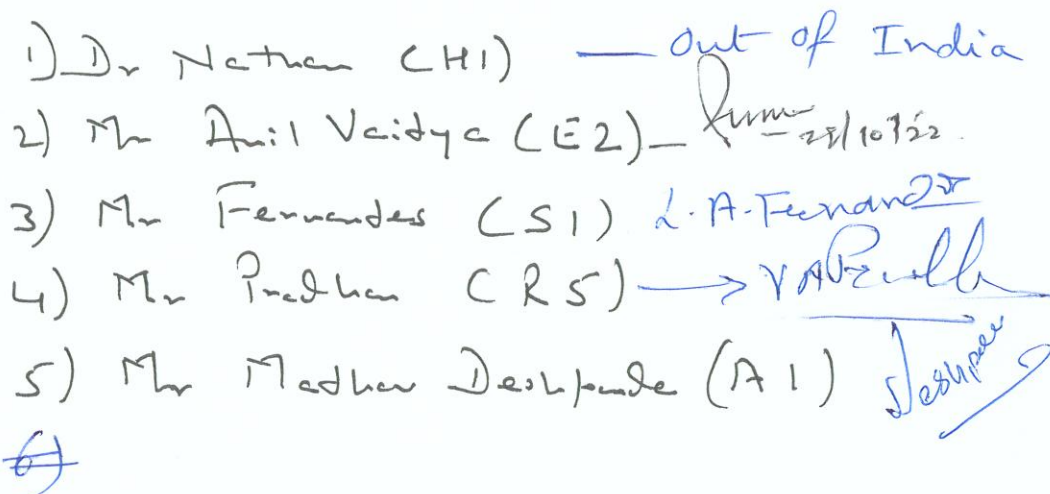 1) Dr Nathan (H1) — Out of India
2) Mr Anil Vaidya (E2) – 28/10/22.
3) Mr Fernandes (S1) L.A.Fernandes
4) Mr Pradhan (R5) →
5) Mr Madhav Deshpande (A1)
6)